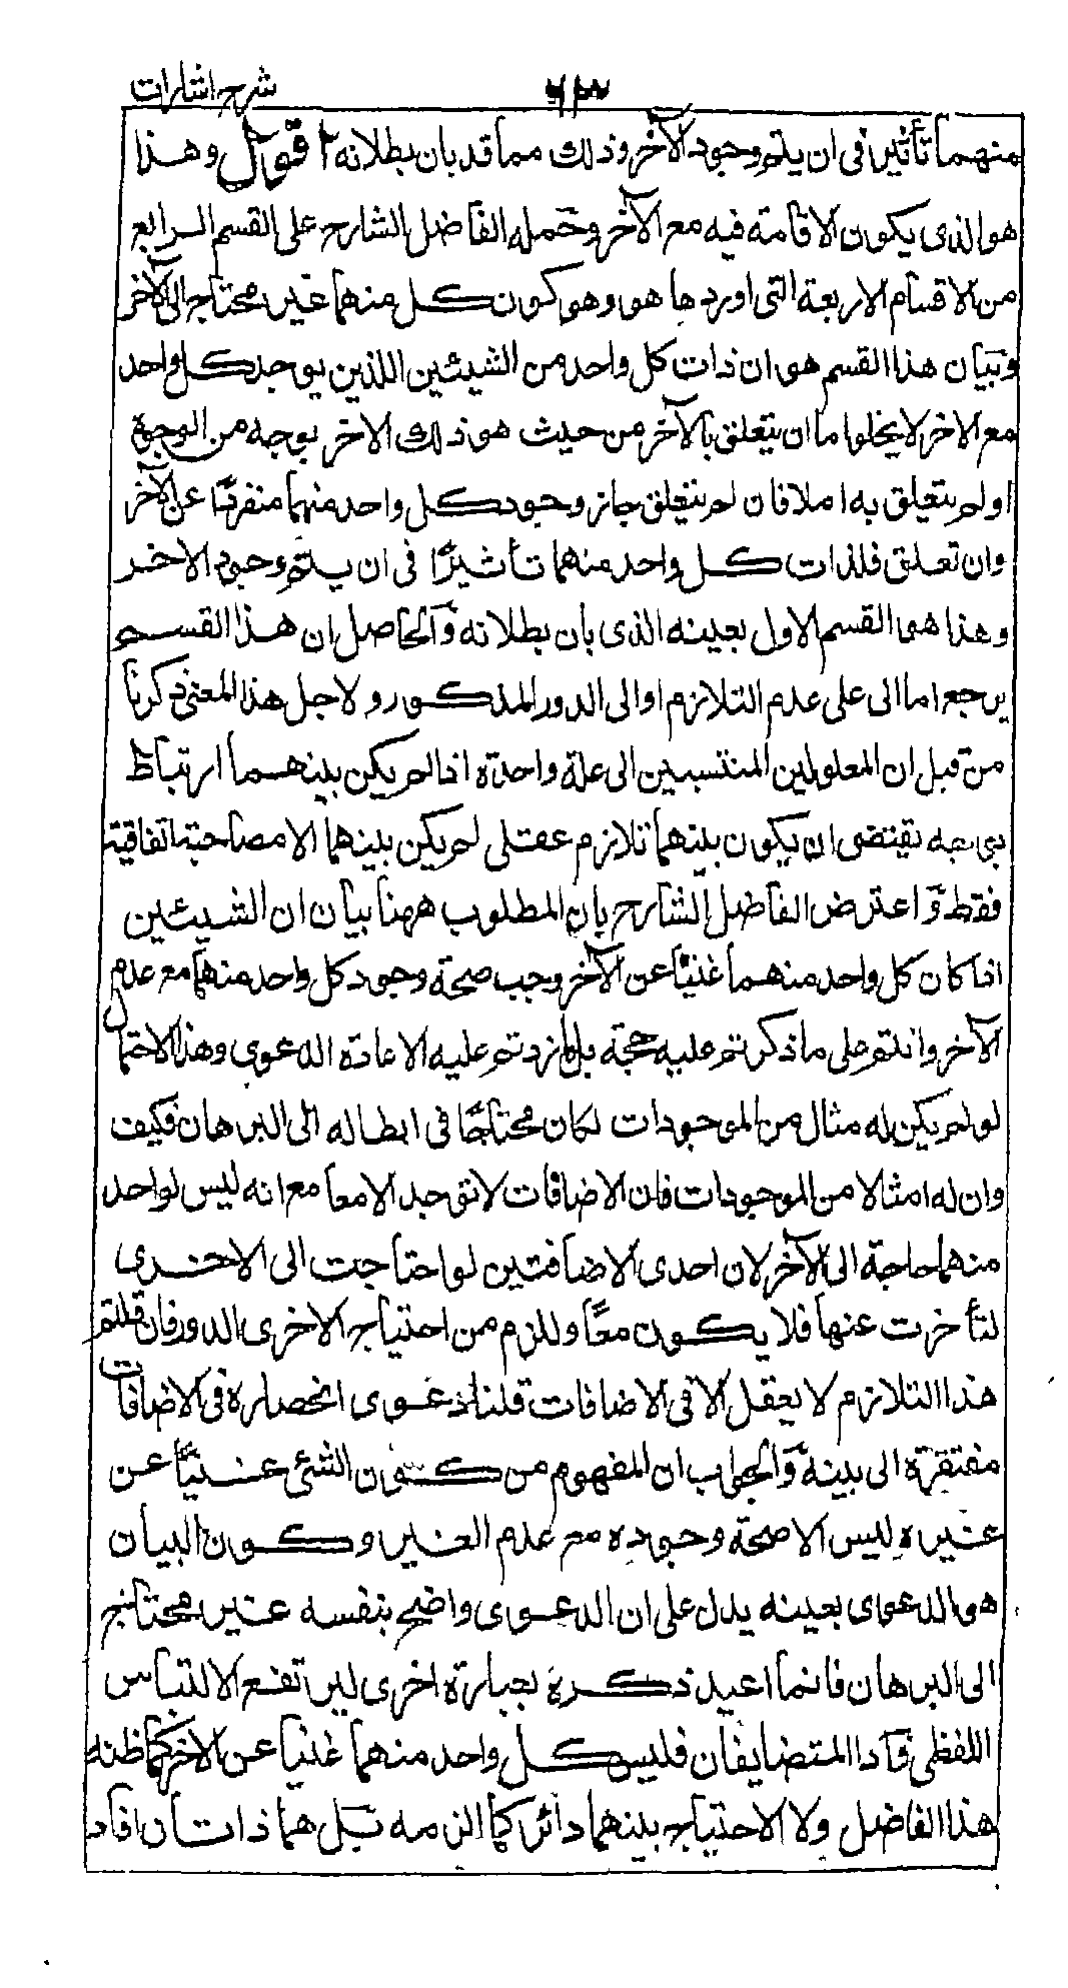 شرح اشارات
۶۳
منهما تأثير في ان يتم وجود الآخر وذلك مما قد بان بطلانه اقول وهذا
هو الذى يكون الاقامة فيه مع الآخر وحمله الفاضل الشارح على القسم الرابع
من الاقسام الاربعة التى اوردها هو وهو كون كل منهما غير محتاج الى الآخر
وبيان هذا القسم هو ان ذات كل واحد من الشيئين اللذين يوجد كل واحد
مع الاخر لا يخلو اما ان يتعلق بالآخر من حيث هو ذلك الاخر بوجه من الوجوه
او لم يتعلق به املا فان لم يتعلق جاز وجود كل واحد منهما منفردًا عن الآخر
وان تعلق فلذات كل واحد منهما تأثيرًا فى ان يتم وجود الاخر
وهذا هو القسم الاول بعينه الذى بان بطلانه والحاصل ان هذا القسم
يرجع اما الى على عدم التلازم او الى الدور المذكور ولاجل هذا المعنى ذكرنا
من قبل ان المعلولين المنتسبين الى علة واحدة اذا لم يكن بينهما ارتباط
بوجه يقتضى ان يكون بينهما تلازم عقلى لم يكن بينهما الا مصاحبة اتفاقية
فقط واعترض الفاضل الشارح بان المطلوب ههنا بيان ان الشيئين
اذا كان كل واحد منهما غنيًا عن الآخر وجب صحة وجود كل واحد منهما مع عدم
الآخر وانتم على ما ذكرتم عليه حجة بل ما زدتم عليه الا عادة الدعوى وهذا الاحتمال
لو لم يكن له مثال من الموجودات لكان محتاجًا فى ابطاله الى البرهان فكيف
وان له امثالا من الموجودات فان الاضافات لا توجد الا معا مع انه ليس لواحد
منهما حاجة الى الآخر لان احدى الاضافتين لو احتاجت الى الاخرى
لتأخرت عنها فلا يكون معًا وللزم من احتياج الاخرى الدور فان قلتم
هذا التلازم لا يعقل الا فى الاضافات قلنا دعوى انحصاره فى الاضافات
مفتقرة الى بينة والجواب ان المفهوم من كون الشئ غنيًا عن
غيره ليس الا صحة وجوده مع عدم الغير وكون البيان
هو الدعوى بعينه يدل على ان الدعوى واضح بنفسه غير محتاج
الى البرهان فانما اعيد ذكره بعبارة اخرى ليرتفع الالتباس
اللفظى واما المتضايفان فليس كل واحد منهما غنيا عن الاخر كما ظنه
هذا الفاضل ولا الاحتياج بينهما دائر كما الزمه بل هما ذاتان افاد